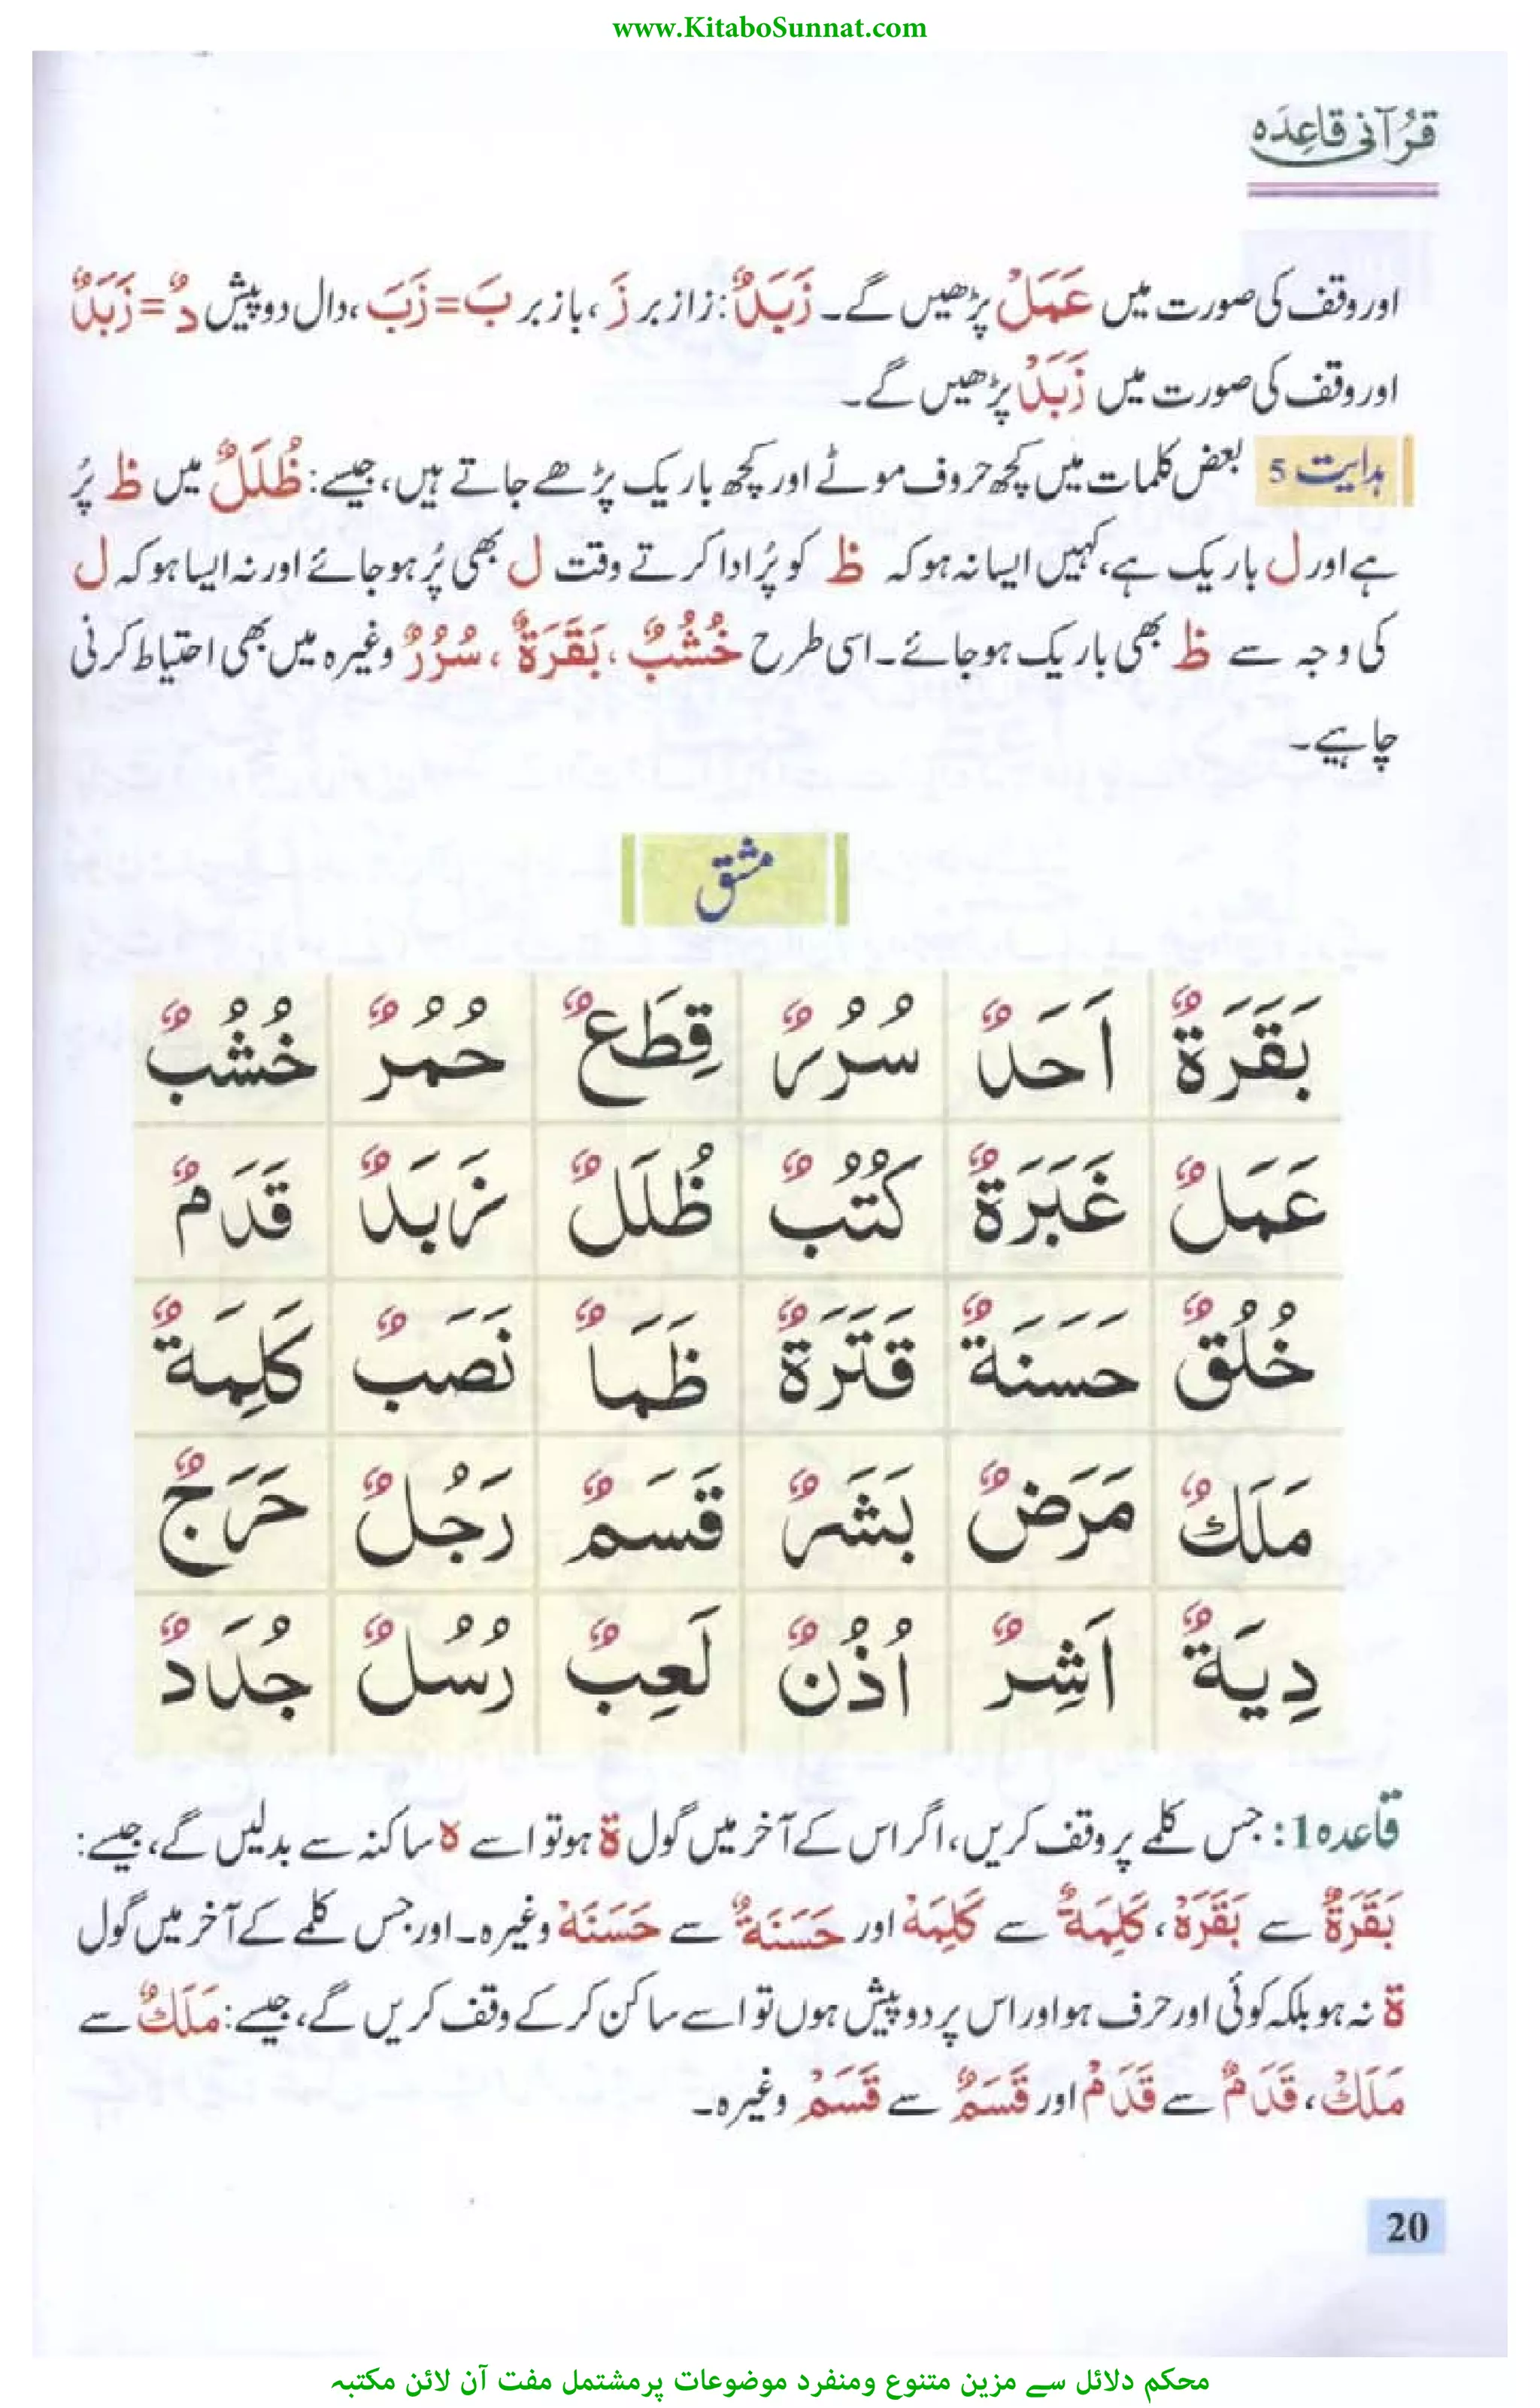 www.KitaboSunnat.com
قُرآنی قاعِدَہ
اور وقف کی صورت میں عَمَلْ پڑھیں گے۔ زَبَدٌ: زا زبر زَ، با زبر بَ = زَبَ، دال دو پیش دٌ = زَبَدٌ
اور وقف کی صورت میں زَبَدْ پڑھیں گے۔
ہدایت 5 بعض کلمات میں کچھ حروف موٹے اور کچھ باریک پڑھے جاتے ہیں، جیسے: ظُلَلٌ میں ظ پُر
ہے اور ل باریک ہے، کہیں ایسا نہ ہو کہ ظ کو پُر ادا کرتے وقت ل بھی پُر ہو جائے اور نہ ایسا ہو کہ ل
کی وجہ سے ظ بھی باریک ہو جائے۔ اسی طرح خُشُبٌ، بَقَرَةٌ، سُرُرٌ وغیرہ میں بھی احتیاط کرنی
چاہیے۔
مشق
بَقَرَةٌ اَحَدٌ سُرُرٌ قِطَعٌ حُمُرٌ خُشُبٌ
عَمَلٌ غَبَرَةٌ كُتُبٌ ظُلَلٌ زَبَدٌ قَدَمٌ
خُلُقٌ حَسَنَةٌ قَتَرَةٌ ظَمَاٌ نَصَبٌ كَلِمَةٌ
مَلَكٌ مَرَضٌ بَشَرٌ قَسَمٌ رَجُلٌ حَرَجٌ
دِيَةٌ اَشِرٌ اُذُنٌ لَعِبٌ رُسُلٌ جُدَدٌ
قاعدہ 1: جس کلمے پر وقف کریں، اگر اس کے آخر میں گول ة ہو تو اسے ہ ساکنہ سے بدلیں گے، جیسے:
بَقَرَةٌ سے بَقَرَهْ، كَلِمَةٌ سے كَلِمَهْ اور حَسَنَةٌ سے حَسَنَهْ وغیرہ۔ اور جس کلمے کے آخر میں گول
ة نہ ہو بلکہ کوئی اور حرف ہو اور اس پر دو پیش ہوں تو اسے ساکن کر کے وقف کریں گے، جیسے: مَلَكٌ سے
مَلَكْ، قَدَمٌ سے قَدَمْ اور قَسَمٌ سے قَسَمْ وغیرہ۔
20
محکم دلائل سے مزین متنوع ومنفرد موضوعات پر مشتمل مفت آن لائن مکتبہ